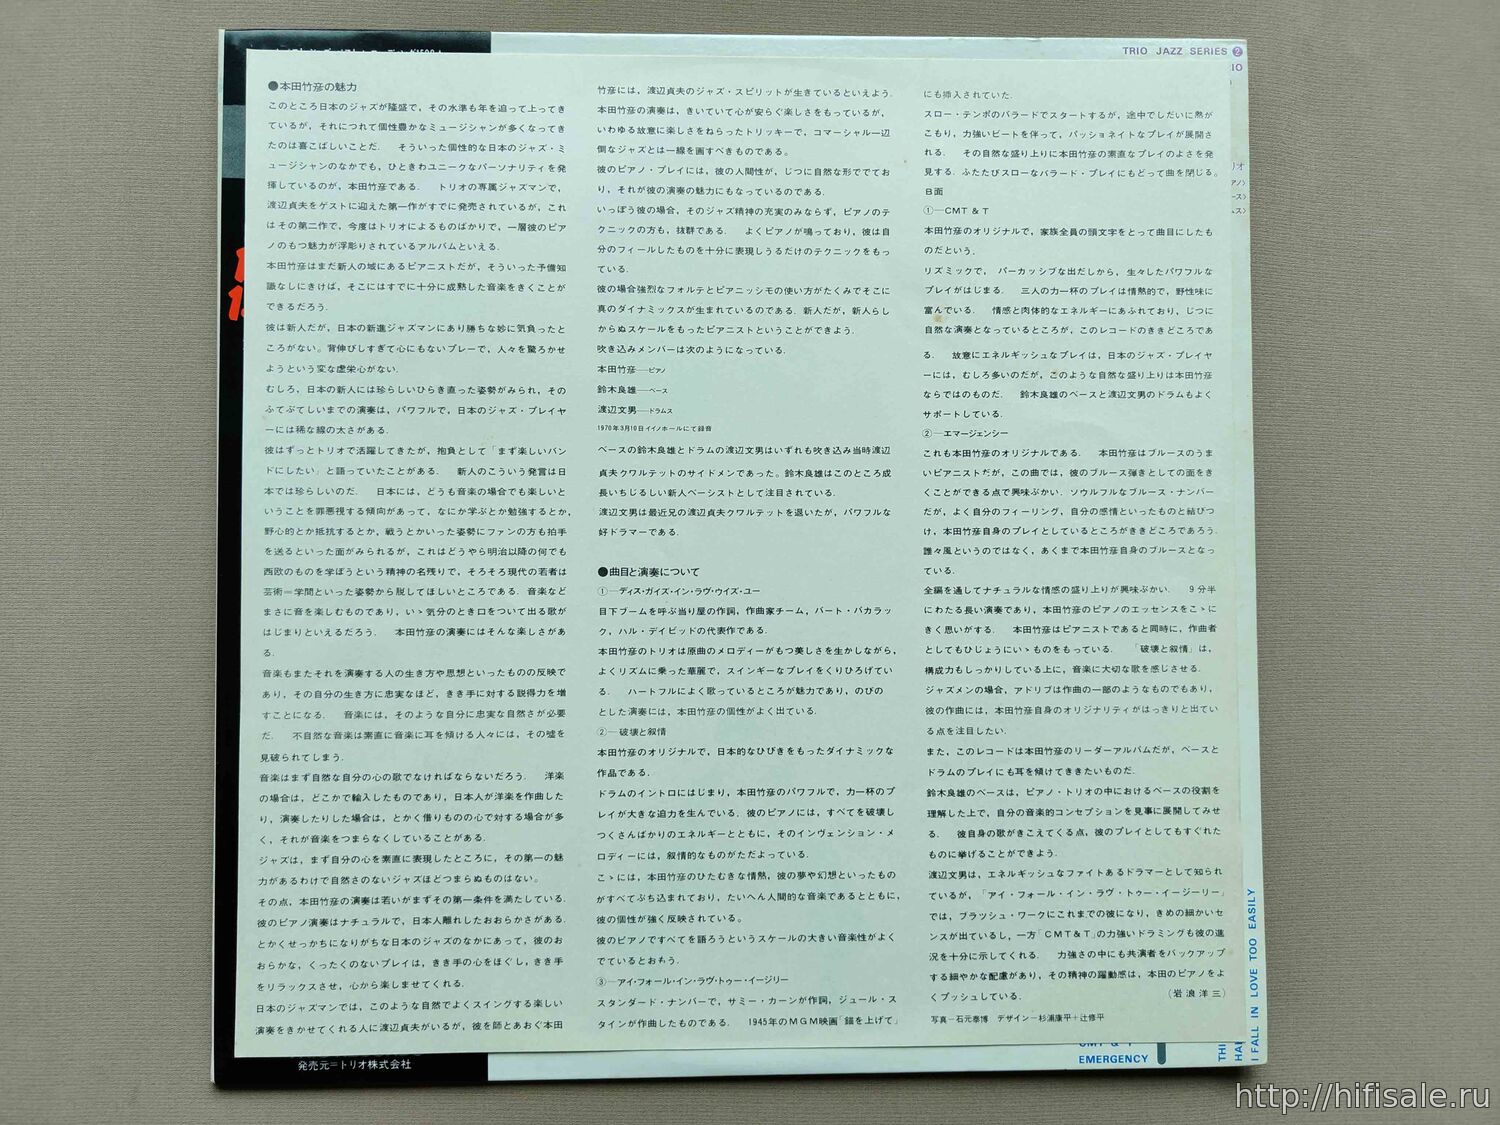 TRIO JAZZ SERIES 2
●本田竹彦の魅力
このところ日本のジャズが隆盛で，その水準も年を追って上ってき
ているが，それにつれて個性豊かなミュージシャンが多くなってき
たのは喜こばしいことだ． そういった個性的な日本のジャズ・ミ
ュージシャンのなかでも，ひときわユニークなパーソナリティを発
揮しているのが，本田竹彦である． トリオの専属ジャズマンで，
渡辺貞夫をゲストに迎えた第一作がすでに発売されているが，これ
はその第二作で，今度はトリオによるものばかりで，一層彼のピア
ノのもつ魅力が浮彫りされているアルバムといえる．
本田竹彦はまだ新人の域にあるピアニストだが，そういった予備知
識なしにきけば，そこにはすでに十分に成熟した音楽をきくことが
できるだろう．
彼は新人だが，日本の新進ジャズマンにあり勝ちな妙に気負ったと
ころがない。背伸びしすぎて心にもないプレーで，人々を驚ろかせ
ようという変な虚栄心がない．
むしろ，日本の新人には珍らしいひらき直った姿勢がみられ，その
ふてぶてしいまでの演奏は，パワフルで，日本のジャズ・プレイヤ
ーには稀な線の太さがある．
彼はずっとトリオで活躍してきたが，抱負として「まず楽しいバン
ドにしたい」と語っていたことがある． 新人のこういう発言は日
本では珍らしいのだ． 日本には，どうも音楽の場合でも楽しいと
いうことを罪悪視する傾向があって，なにか学ぶとか勉強するとか，
野心的とか抵抗するとか，戦うとかいった姿勢にファンの方も拍手
を送るといった面がみられるが，これはどうやら明治以降の何でも
西欧のものを学ぼうという精神の名残りで，そろそろ現代の若者は
芸術＝学問といった姿勢から脱してほしいところである．音楽など
まさに音を楽しむものであり，いゝ気分のとき口をついて出る歌が
はじまりといえるだろう． 本田竹彦の演奏にはそんな楽しさがあ
る．
音楽もまたそれを演奏する人の生き方や思想といったものの反映で
あり，その自分の生き方に忠実なほど，きき手に対する説得力を増
すことになる． 音楽には，そのような自分に忠実な自然さが必要
だ． 不自然な音楽は素直に音楽に耳を傾ける人々には，その嘘を
見破られてしまう．
音楽はまず自然な自分の心の歌でなければならないだろう． 洋楽
の場合は，どこかで輸入したものであり，日本人が洋楽を作曲した
り，演奏したりした場合は，とかく借りものの心で対する場合が多
く，それが音楽をつまらなくしていることがある．
ジャズは，まず自分の心を素直に表現したところに，その第一の魅
力があるわけで自然さのないジャズほどつまらぬものはない。
その点，本田竹彦の演奏は若いがまずその第一条件を満たしている．
彼のピアノ演奏はナチュラルで，日本人離れしたおおらかさがある．
とかくせっかちになりがちな日本のジャズのなかにあって，彼のお
おらかな，くったくのないプレイは，きき手の心をほぐし，きき手
をリラックスさせ，心から楽しませてくれる．
日本のジャズマンでは，このような自然でよくスイングする楽しい
演奏をきかせてくれる人に渡辺貞夫がいるが，彼を師とあおぐ本田
竹彦には，渡辺貞夫のジャズ・スピリットが生きているといえよう．
本田竹彦の演奏は，きいていて心が安らぐ楽しさをもっているが，
いわゆる故意に楽しさをねらったトリッキーで，コマーシャル一辺
倒なジャズとは一線を画すべきものである。
彼のピアノ・プレイには，彼の人間性が，じつに自然な形ででてお
り，それが彼の演奏の魅力にもなっているのである．
いっぽう彼の場合，そのジャズ精神の充実のみならず，ピアノのテ
クニックの方も，抜群である． よくピアノが鳴っており，彼は自
分のフィールしたものを十分に表現しうるだけのテクニックをもっ
ている．
彼の場合強烈なフォルテとピアニッシモの使い方がたくみでそこに
真のダイナミックスが生まれているのである．新人だが，新人らし
からぬスケールをもったピアニストということができよう．
吹き込みメンバーは次のようになっている．
本田竹彦—ピアノ
鈴木良雄—ベース
渡辺文男—ドラムス
1970年3月10日イイノホールにて録音
ベースの鈴木良雄とドラムの渡辺文男はいずれも吹き込み当時渡辺
貞夫クワルテットのサイドメンであった．鈴木良雄はこのところ成
長いちじるしい新人ベーシストとして注目されている．
渡辺文男は最近兄の渡辺貞夫クワルテットを退いたが，パワフルな
好ドラマーである．
●曲目と演奏について
①—ディス・ガイズ・イン・ラヴ・ウイズ・ユー
目下ブームを呼ぶ当り屋の作詞，作曲家チーム，バート・バカラッ
ク，ハル・デイビッドの代表作である．
本田竹彦のトリオは原曲のメロディーがもつ美しさを生かしながら，
よくリズムに乗った華麗で，スインギーなプレイをくりひろげてい
る． ハートフルによく歌っているところが魅力であり，のびの
とした演奏には，本田竹彦の個性がよく出ている．
②—破壊と叙情
本田竹彦のオリジナルで，日本的なひびきをもったダイナミックな
作品である．
ドラムのイントロにはじまり，本田竹彦のパワフルで，力一杯のプ
レイが大きな迫力を生んでいる． 彼のピアノには，すべてを破壊し
つくさんばかりのエネルギーとともに，そのインヴェンション・メ
ロディーには，叙情的なものがただよっている．
こゝには，本田竹彦のひたむきな情熱，彼の夢や幻想といったもの
がすべてぶち込まれており，たいへん人間的な音楽であるとともに，
彼の個性が強く反映されている。
彼のピアノですべてを語ろうというスケールの大きい音楽性がよく
でているとおもう．
③—アイ・フォール・イン・ラヴ・トゥー・イージリー
スタンダード・ナンバーで，サミー・カーンが作詞，ジュール・ス
タインが作曲したものである． 1945年のMGM映画「錨を上げて」
にも挿入されていた．
スロー・テンポのバラードでスタートするが，途中でしだいに熱が
こもり，力強いビートを伴って，パッショネイトなプレイが展開さ
れる． その自然な盛り上りに本田竹彦の素直なプレイのよさを発
見する．ふたたびスローなバラード・プレイにもどって曲を閉じる。
B面
①—CMT & T
本田竹彦のオリジナルで，家族全員の頭文字をとって曲目にしたも
のだという．
リズミックで， パーカッシブな出だしから，生々したパワフルな
プレイがはじまる． 三人の力一杯のプレイは情熱的で，野性味に
富んでいる． 情感と肉体的なエネルギーにあふれており，じつに
自然な演奏となっているところが，このレコードのききどころであ
る． 故意にエネルギッシュなプレイは，日本のジャズ・プレイヤ
ーには，むしろ多いのだが，このような自然な盛り上りは本田竹彦
ならではのものだ． 鈴木良雄のベースと渡辺文男のドラムもよく
サポートしている．
②—エマージェンシー
これも本田竹彦のオリジナルである． 本田竹彦はブルースのうま
いピアニストだが，この曲では，彼のブルース弾きとしての面をき
くことができる点で興味ぶかい．ソウルフルなブルース・ナンバー
だが，よく自分のフィーリング，自分の感情といったものと結びつ
け，本田竹彦自身のプレイとしているところがききどころであろう．
誰々風というのではなく，あくまで本田竹彦自身のブルースとなっ
ている．
全編を通してナチュラルな情感の盛り上りが興味ぶかい． 9分半
にわたる長い演奏であり，本田竹彦のピアノのエッセンスをこゝに
きく思いがする． 本田竹彦はピアニストであると同時に，作曲者
としてもひじょうにいゝものをもっている． 「破壊と叙情」は，
構成力もしっかりしている上に，音楽に大切な歌を感じさせる．
ジャズメンの場合，アドリブは作曲の一部のようなものでもあり，
彼の作曲には，本田竹彦自身のオリジナリティがはっきりと出てい
る点を注目したい．
また，このレコードは本田竹彦のリーダーアルバムだが，ベースと
ドラムのプレイにも耳を傾けてききたいものだ．
鈴木良雄のベースは，ピアノ・トリオの中におけるベースの役割を
理解した上で，自分の音楽的コンセプションを見事に展開してみせ
る． 彼自身の歌がきこえてくる点，彼のプレイとしてもすぐれた
ものに挙げることができよう．
渡辺文男は，エネルギッシュなファイトあるドラマーとして知られ
ているが，「アイ・フォール・イン・ラヴ・トゥー・イージーリー」
では，ブラッシュ・ワークにこれまでの彼になり，きめの細かいセ
ンスが出ているし，一方「CMT&T」の力強いドラミングも彼の進
況を十分に示してくれる． 力強さの中にも共演者をバックアップ
する細やかな配慮があり，その精神の躍動感は，本田のピアノをよ
くプッシュしている．
（岩浪洋三）
写真—石元泰博 デザイン—杉浦康平＋辻修平
発売元＝トリオ株式会社
EMERGENCY
I FALL IN LOVE TOO EASILY
http://hifisale.ru